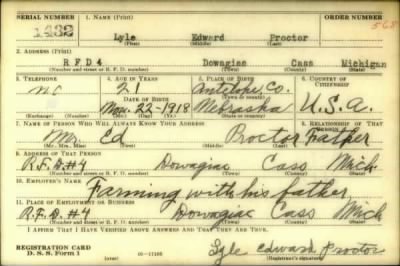 SERIAL NUMBER 1. NAME (Print) ORDER NUMBER
Lyle Edward Proctor 568
(First) (Middle) (Last)
2. ADDRESS (Print)
R F D 4 Dowagiac Cass Michigan
(Number and street or R. F. D. number) (Town) (County) (State)
3. TELEPHONE 4. AGE IN YEARS 5. PLACE OF BIRTH 6. COUNTRY OF CITIZENSHIP
no 21 Antelope, Co.
DATE OF BIRTH
Nov. 22-1918 Nebraska U.S.A.
(Exchange) (Number) (Mo.) (Day) (Yr.) (State or country)
7. NAME OF PERSON WHO WILL ALWAYS KNOW YOUR ADDRESS 8. RELATIONSHIP OF THAT PERSON
Mr. Ed Proctor Father
(Mr., Mrs., Miss) (First) (Middle) (Last)
9. ADDRESS OF THAT PERSON
R.F.D.#4 Dowagiac Cass Mich.
(Number and street or R. F. D. number) (Town) (County) (State)
10. EMPLOYER'S NAME
Farming with his father,
11. PLACE OF EMPLOYMENT OR BUSINESS
R.F.D.#4 Dowagiac Cass Mich
(Number and street or R. F. D. number) (Town) (County) (State)
I AFFIRM THAT I HAVE VERIFIED ABOVE ANSWERS AND THAT THEY ARE TRUE.
REGISTRATION CARD
D. S. S. Form 1 (over) 16-17105 Lyle edward Proctor
(Registrant's signature)